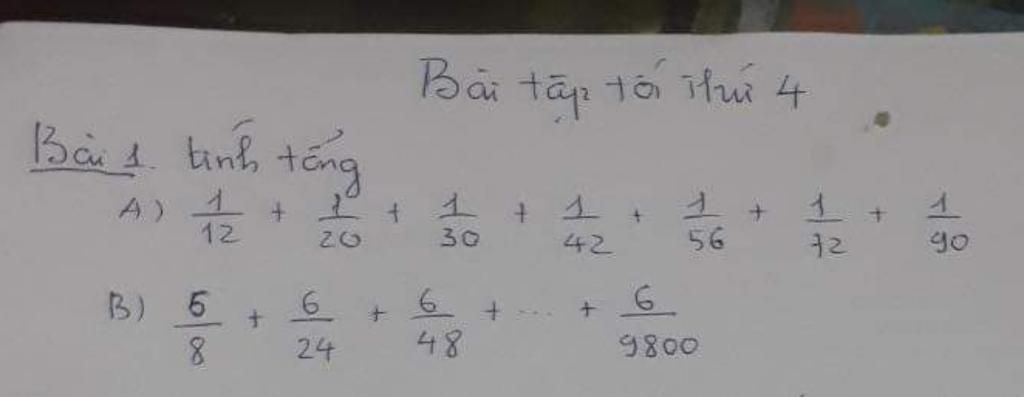 Bài tập tối thứ 4
Bài 1. tính tổng
A) 1/12 + 1/20 + 1/30 + 1/42 + 1/56 + 1/72 + 1/90
B) 6/8 + 6/24 + 6/48 + ... + 6/9800